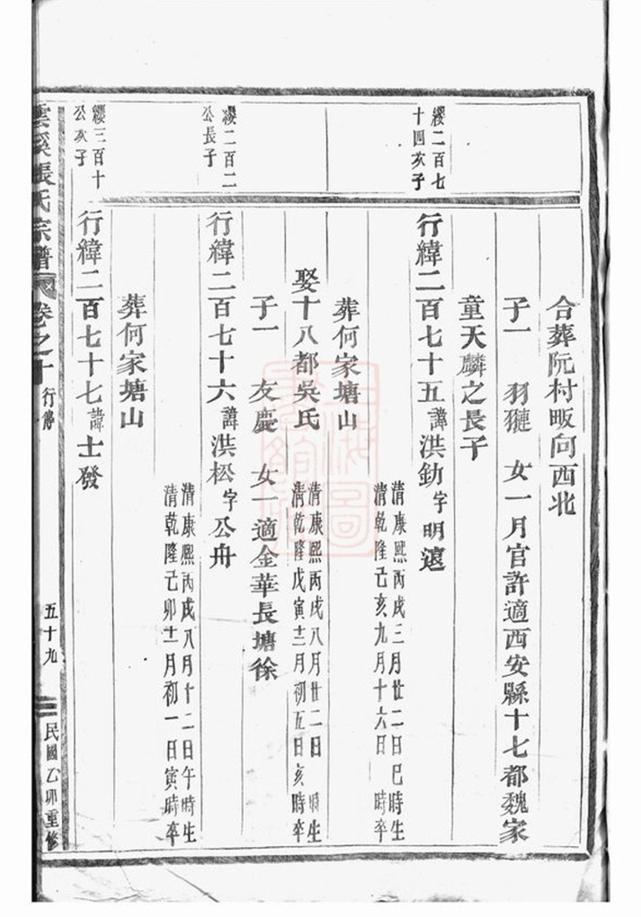 合葬阮村畈向西北
子一 羽𤠔 女一月官許適西安縣十七都魏家
童天麟之長子
纓二百七
十四次子
行緯二百七十五諱洪釛字明遠
清康熙丙戌三月廿二日巳時生
清乾隆己亥九月十六日 時卒
葬何家塘山
娶十八都吳氏
清康熙丙戌八月廿二日 時生
清乾隆戊寅十二月初五日亥時卒
子一 友慶 女一適金華長塘徐
纓二百二
公長子
行緯二百七十六諱洪松字公舟
清康熙丙戌八月十二日午時生
清乾隆己卯十一月初一日寅時卒
葬何家塘山
纓三百十
公次子
行緯二百七十七諱士發
雲溪張氏宗譜
卷之十
行傳
五十九
民國乙卯重修